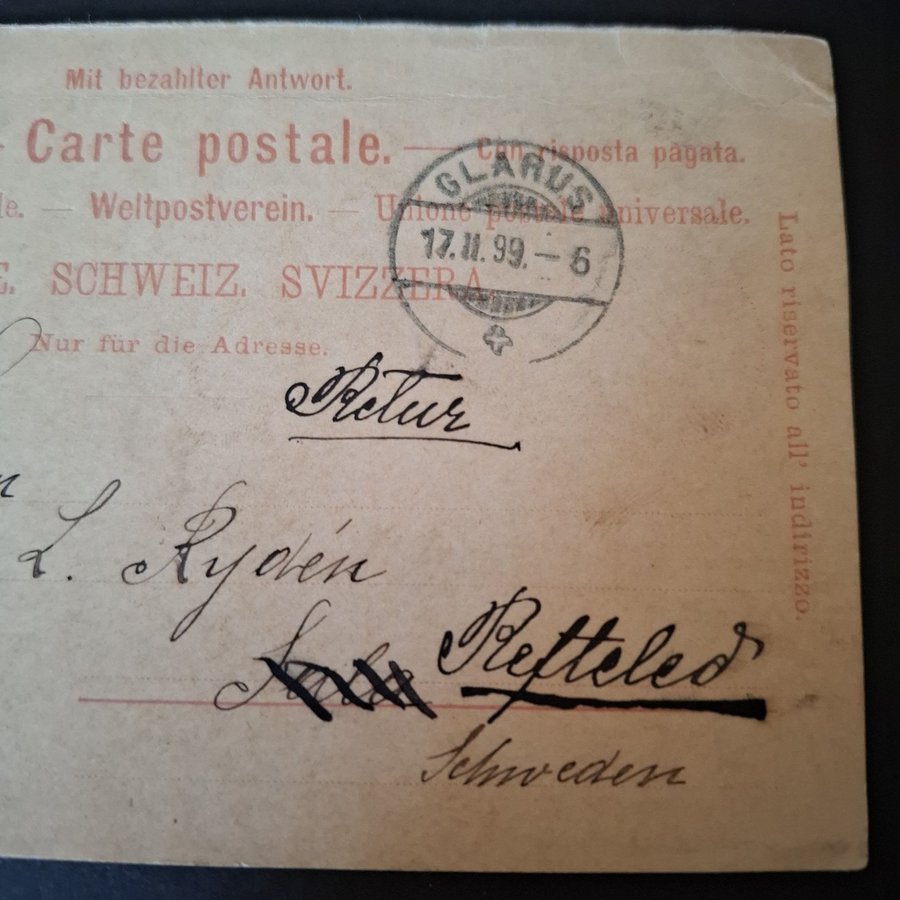 Mit bezahlter Antwort.
Carte postale. — Con risposta pagata.
le. — Weltpostverein. — Unione postale universale.
E. SCHWEIZ. SVIZZERA.
Nur für die Adresse.
GLARUS
17.II.99.-6
Retur
n
L. Rydén
Refteled
Schweden
Lato riservato all' indirizzo.